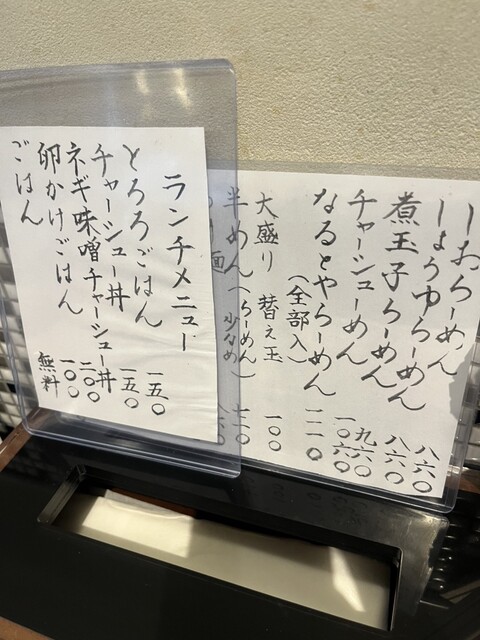 しおらーめん 八六〇
しょうゆらーめん 八六〇
煮玉子らーめん 九六〇
チャーシューめん 一〇六〇
なるとやらーめん
(全部入) 一二一〇
大盛り 替え玉 一〇〇
半めん(らーめん少なめ)
麺
ランチメニュー
とろろごはん 一五〇
チャーシュー丼 一五〇
ネギ味噌チャーシュー丼 二〇〇
卵かけごはん 一〇〇
ごはん 無料